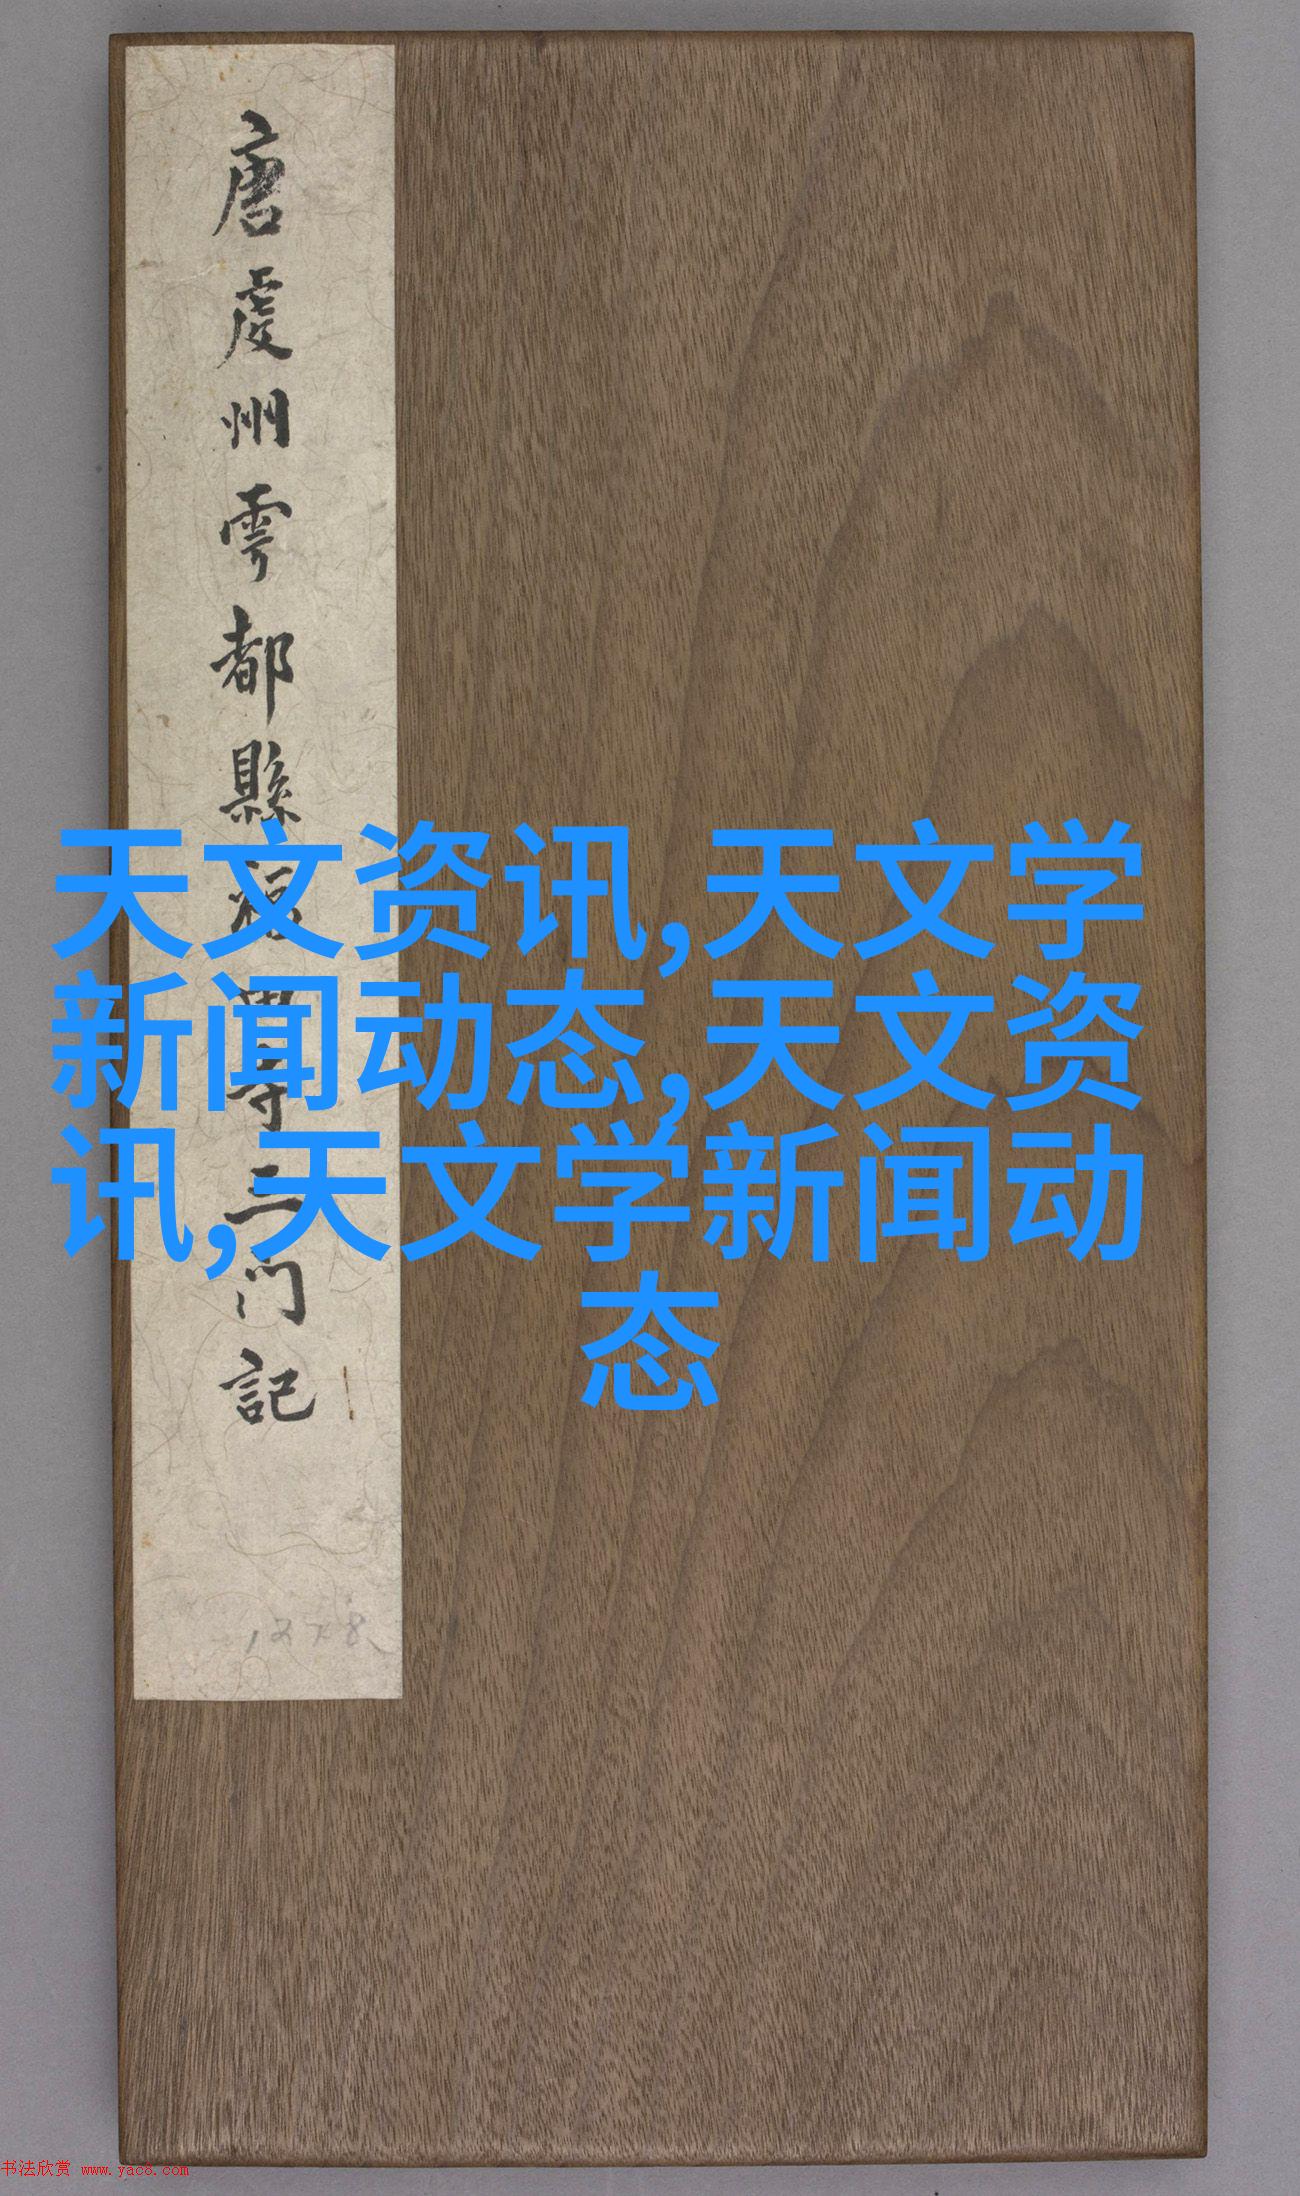 唐虔州雩都縣寺三门記
天文资讯,天文学
新闻动态,天文资
讯,天文学新闻动
态
书法欣赏 www.yac8.com